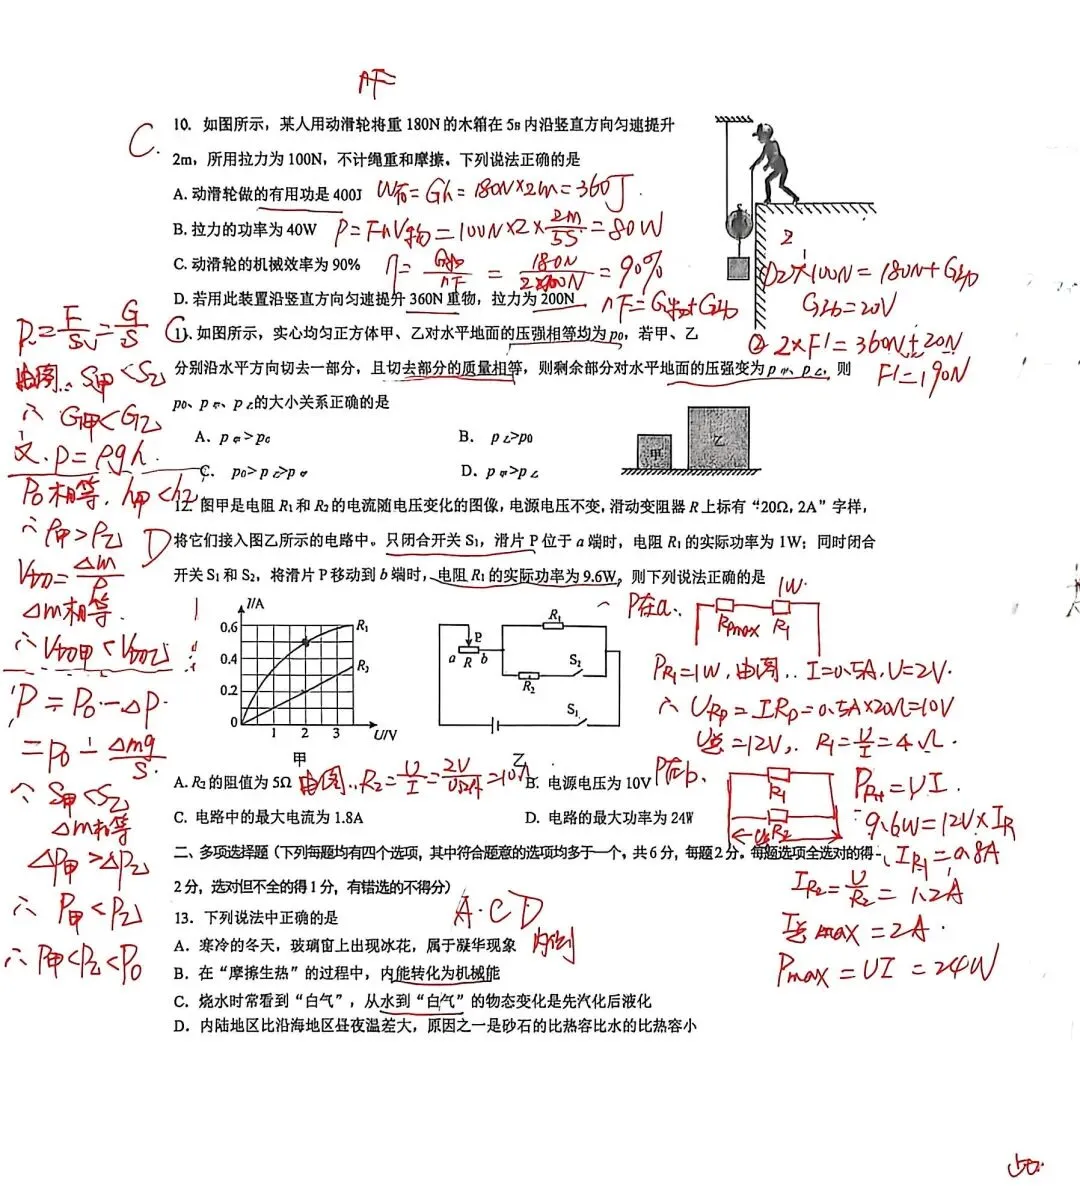 nF=
C.
10. 如图所示，某人用动滑轮将重180N的木箱在5s内沿竖直方向匀速提升
2m，所用拉力为100N，不计绳重和摩擦。下列说法正确的是
A. 动滑轮做的有用功是400J W有=Gh=180N×2m=360J.
B. 拉力的功率为40W P=FnV物=100N×2×2m/5s=80W
C. 动滑轮的机械效率为90% η=G物/nF=180N/2×100N=90%
D. 若用此装置沿竖直方向匀速提升360N重物，拉力为200N nF=G物+G动
2
①2×100N=180N+G动
G动=20N
②2×F1=360N+20N
F1=190N
C
11. 如图所示，实心均匀正方体甲、乙对水平地面的压强相等均为p₀，若甲、乙
分别沿水平方向切去一部分，且切去部分的质量相等，则剩余部分对水平地面的压强变为p甲、p乙，则
p₀、p甲、p乙的大小关系正确的是
A. p甲>p₀
B. p乙>p₀
C. p₀>p乙>p甲
D. p甲>p乙
甲
乙
P=F/S=G/S
由图.. S甲<S乙
∴ G甲<G乙
又.P=ρgh.
P₀相等, h甲<h乙
∴ρ甲>ρ乙
V切=Δm/ρ
Δm相等.
∴V切甲<V切乙
P=P₀-ΔP.
=P₀-Δmg/S
∵ S甲<S乙
Δm相等
ΔP甲>ΔP乙
∴ P甲<P乙
∴P甲<P乙<P₀
D
12. 图甲是电阻R₁和R₂的电流随电压变化的图像，电源电压不变，滑动变阻器R上标有“20Ω，2A”字样，
将它们接入图乙所示的电路中。只闭合开关S₁，滑片P位于a端时，电阻R₁的实际功率为1W；同时闭合
开关S₁和S₂，将滑片P移动到b端时，电阻R₁的实际功率为9.6W，则下列说法正确的是
I/A
0.6
0.4
0.2
0
1 2 3 U/V
R₁
R₂
甲
P
a R b
R₁
R₂
S₂
S₁
乙
P在a..
1W
Rpmax R₁
PR₁=1W,由图.. I=0.5A,U=2V.
∴URp=IRp=0.5A×20Ω=10V
U总=12V,. R₁=U/I=4Ω.
A. R₂的阻值为5Ω 由图..R₂=U/I=2V/0.2A=10Ω
B. 电源电压为10V P在b.
C. 电路中的最大电流为1.8A
D. 电路的最大功率为24W
R₁
R₂
PR₁=UI.
9.6W=12V×IR
IR₁=0.8A
IR₂=U/R₂=1.2A
I总max=2A.
Pmax=UI=24W
二、多项选择题（下列每题均有四个选项，其中符合题意的选项均多于一个。共6分，每题2分。每题选项全选对的得
2分，选对但不全的得1分，有错选的不得分）
13. 下列说法中正确的是 A.C D
A. 寒冷的冬天，玻璃窗上出现冰花，属于凝华现象 内侧
B. 在“摩擦生热”的过程中，内能转化为机械能
C. 烧水时常看到“白气”，从水到“白气”的物态变化是先汽化后液化
D. 内陆地区比沿海地区昼夜温差大，原因之一是砂石的比热容比水的比热容小